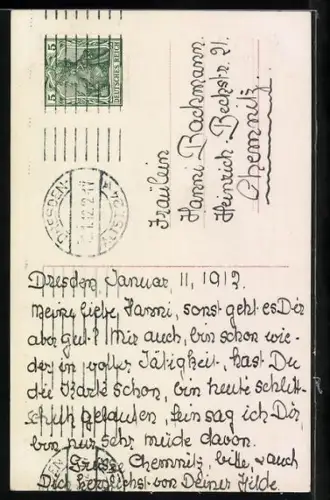 5 5
DEUTSCHES REICH
DRESDEN
ALTST.
Fräulein
Hanni Bachmann.
Heinrich-Beckstr. 21.
Chemnitz.
Dresden, Januar 11, 1912.
meine liebe Hanni, sonst geht es Dir
aber gut? Mir auch, bin schon wie-
der in voller Tätigkeit, hast Du
die Karte schon, bin heute schlitt-
schuh gelaufen, fein sag ich Dir,
bin nur sehr müde davon.
Grüsse Chemnitz, bitte, & auch
Dich herzlichst von Deiner Hilde.